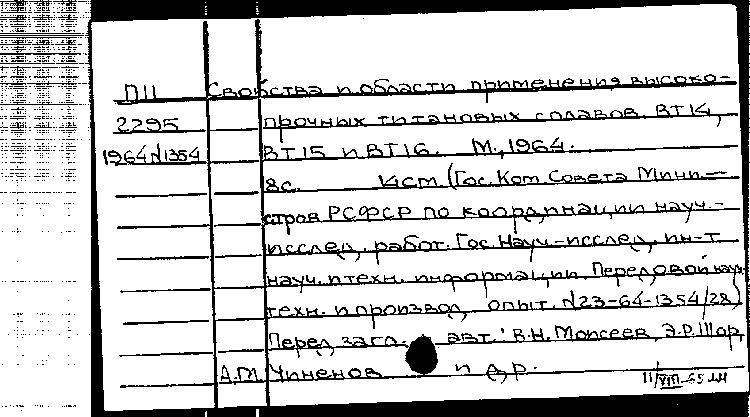 П11 Свойства и области применения высоко-
2295 прочных титановых сплавов ВТ14,
1964 N1354 ВТ15 и ВТ16. М., 1964.
8с. (Гос. Ком. Совета Мини-
стров РСФСР по координации науч.-
исслед. работ. Гос. Науч.-исслед. ин-т
науч. и техн. информации. Передовой науч.
техн. и производ. опыт. N23-64-1354/28)
Перед загл. авт.: В.Н. Моисеев, Э.Р. Шор,
А.М. и др.